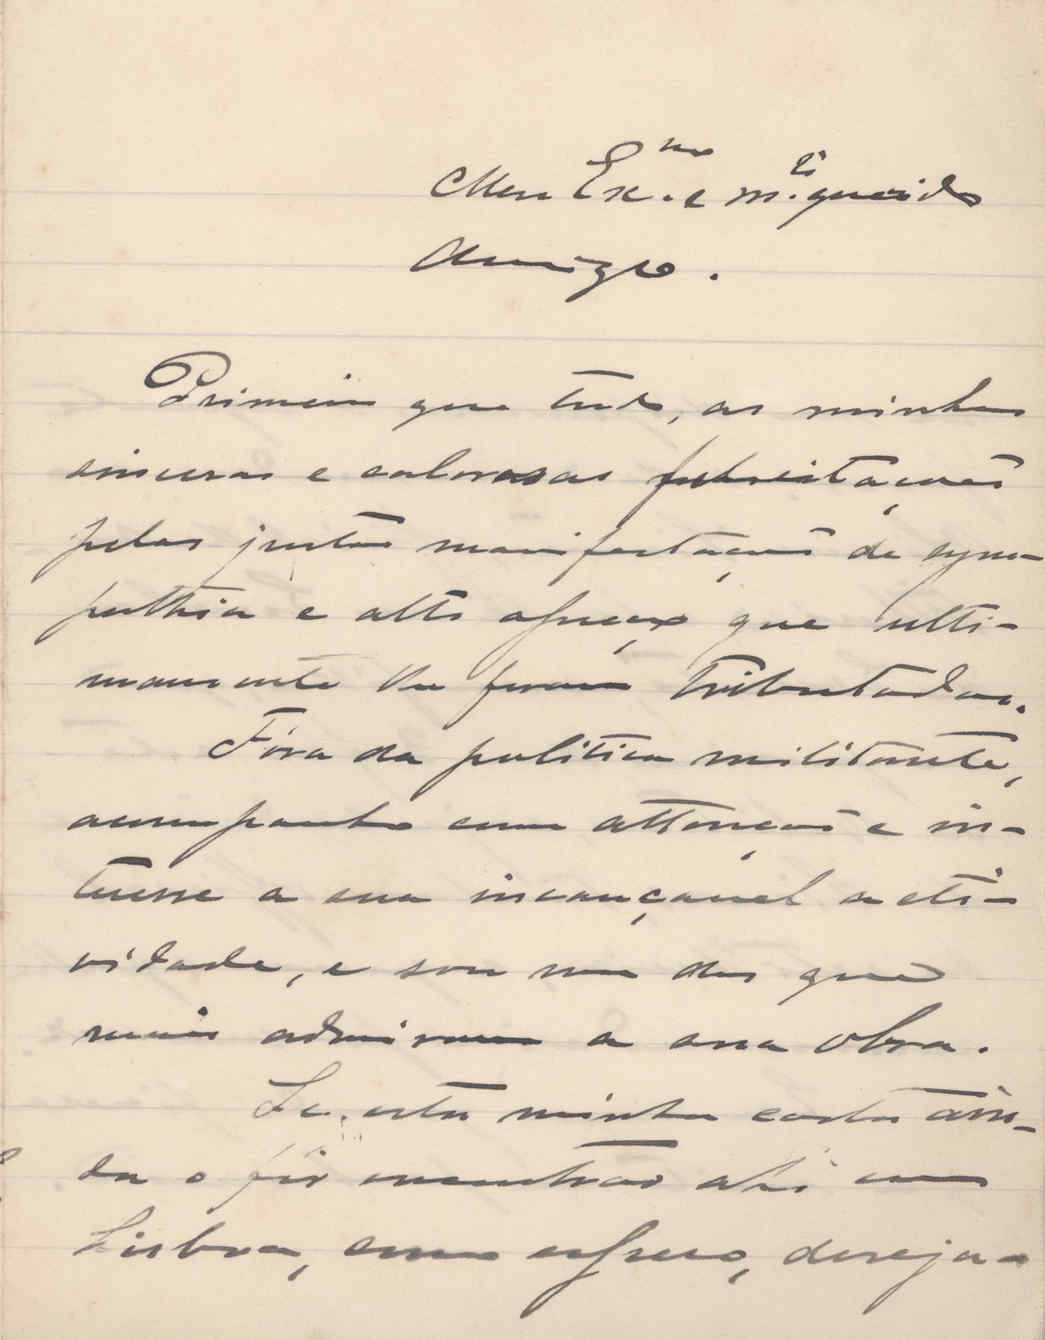 Meu Ex.mo e m.to querido
Amigo.
Primeiro que tudo, as minhas
sinceras e calorosas felicitações
pelas justas manifestações de sym-
pathia e alto apreço que ulti-
mamente lhe foram tributadas.
Fóra da politica militante,
acompanho com attenção e in-
teresse a sua incançavel acti-
vidade, e sou um dos que
mais admiram a sua obra.
Se esta minha carta ain-
da o fôr encontrar ahi em
Lisboa, como espero, deseja-